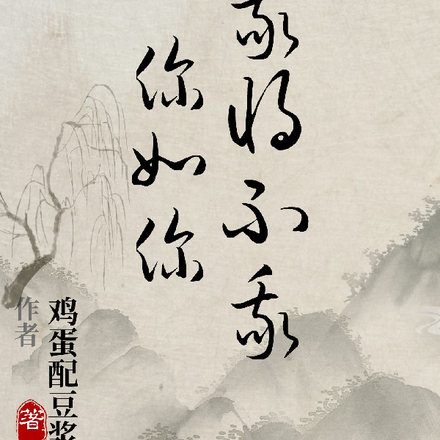 我将不我
你如你
作者
鸡蛋配豆浆
著